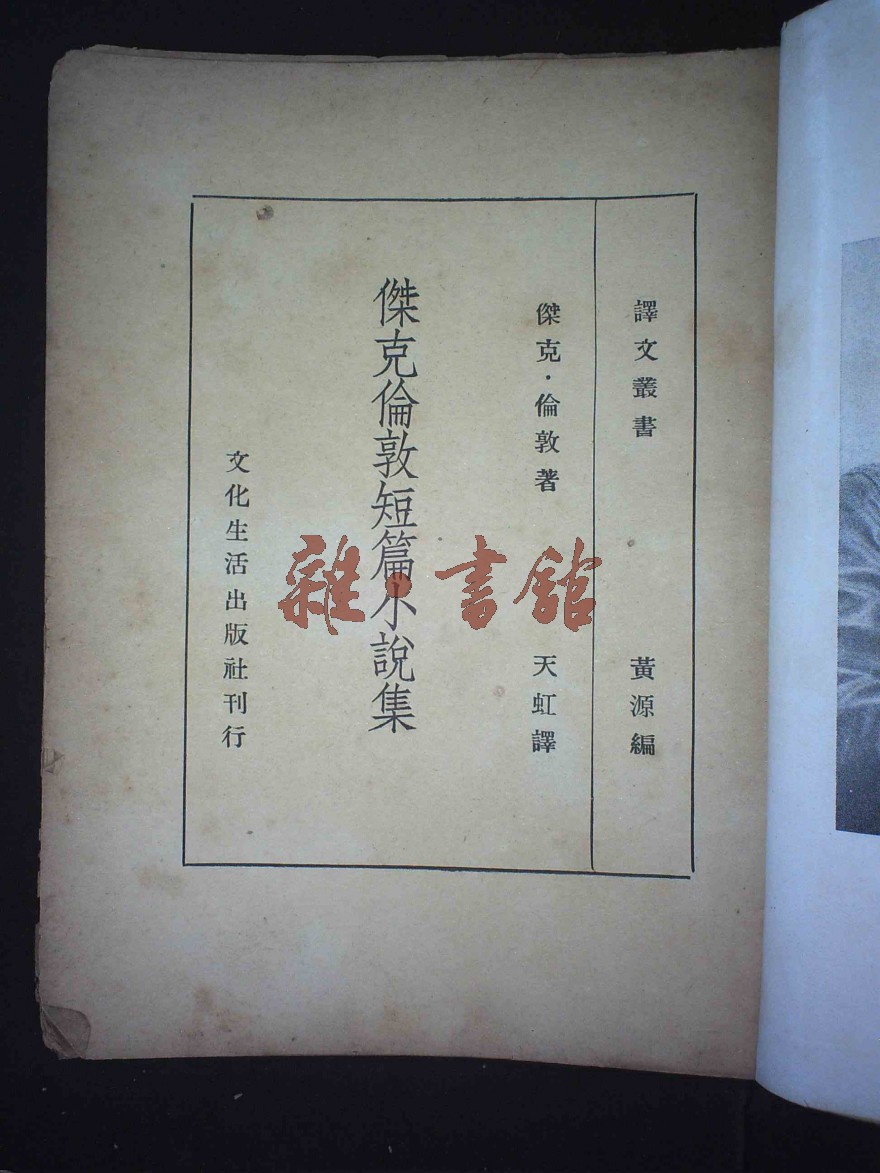 譯文叢書
黃源編
傑克·倫敦著
天虹譯
傑克倫敦短篇小說集
文化生活出版社刊行
雜·書館